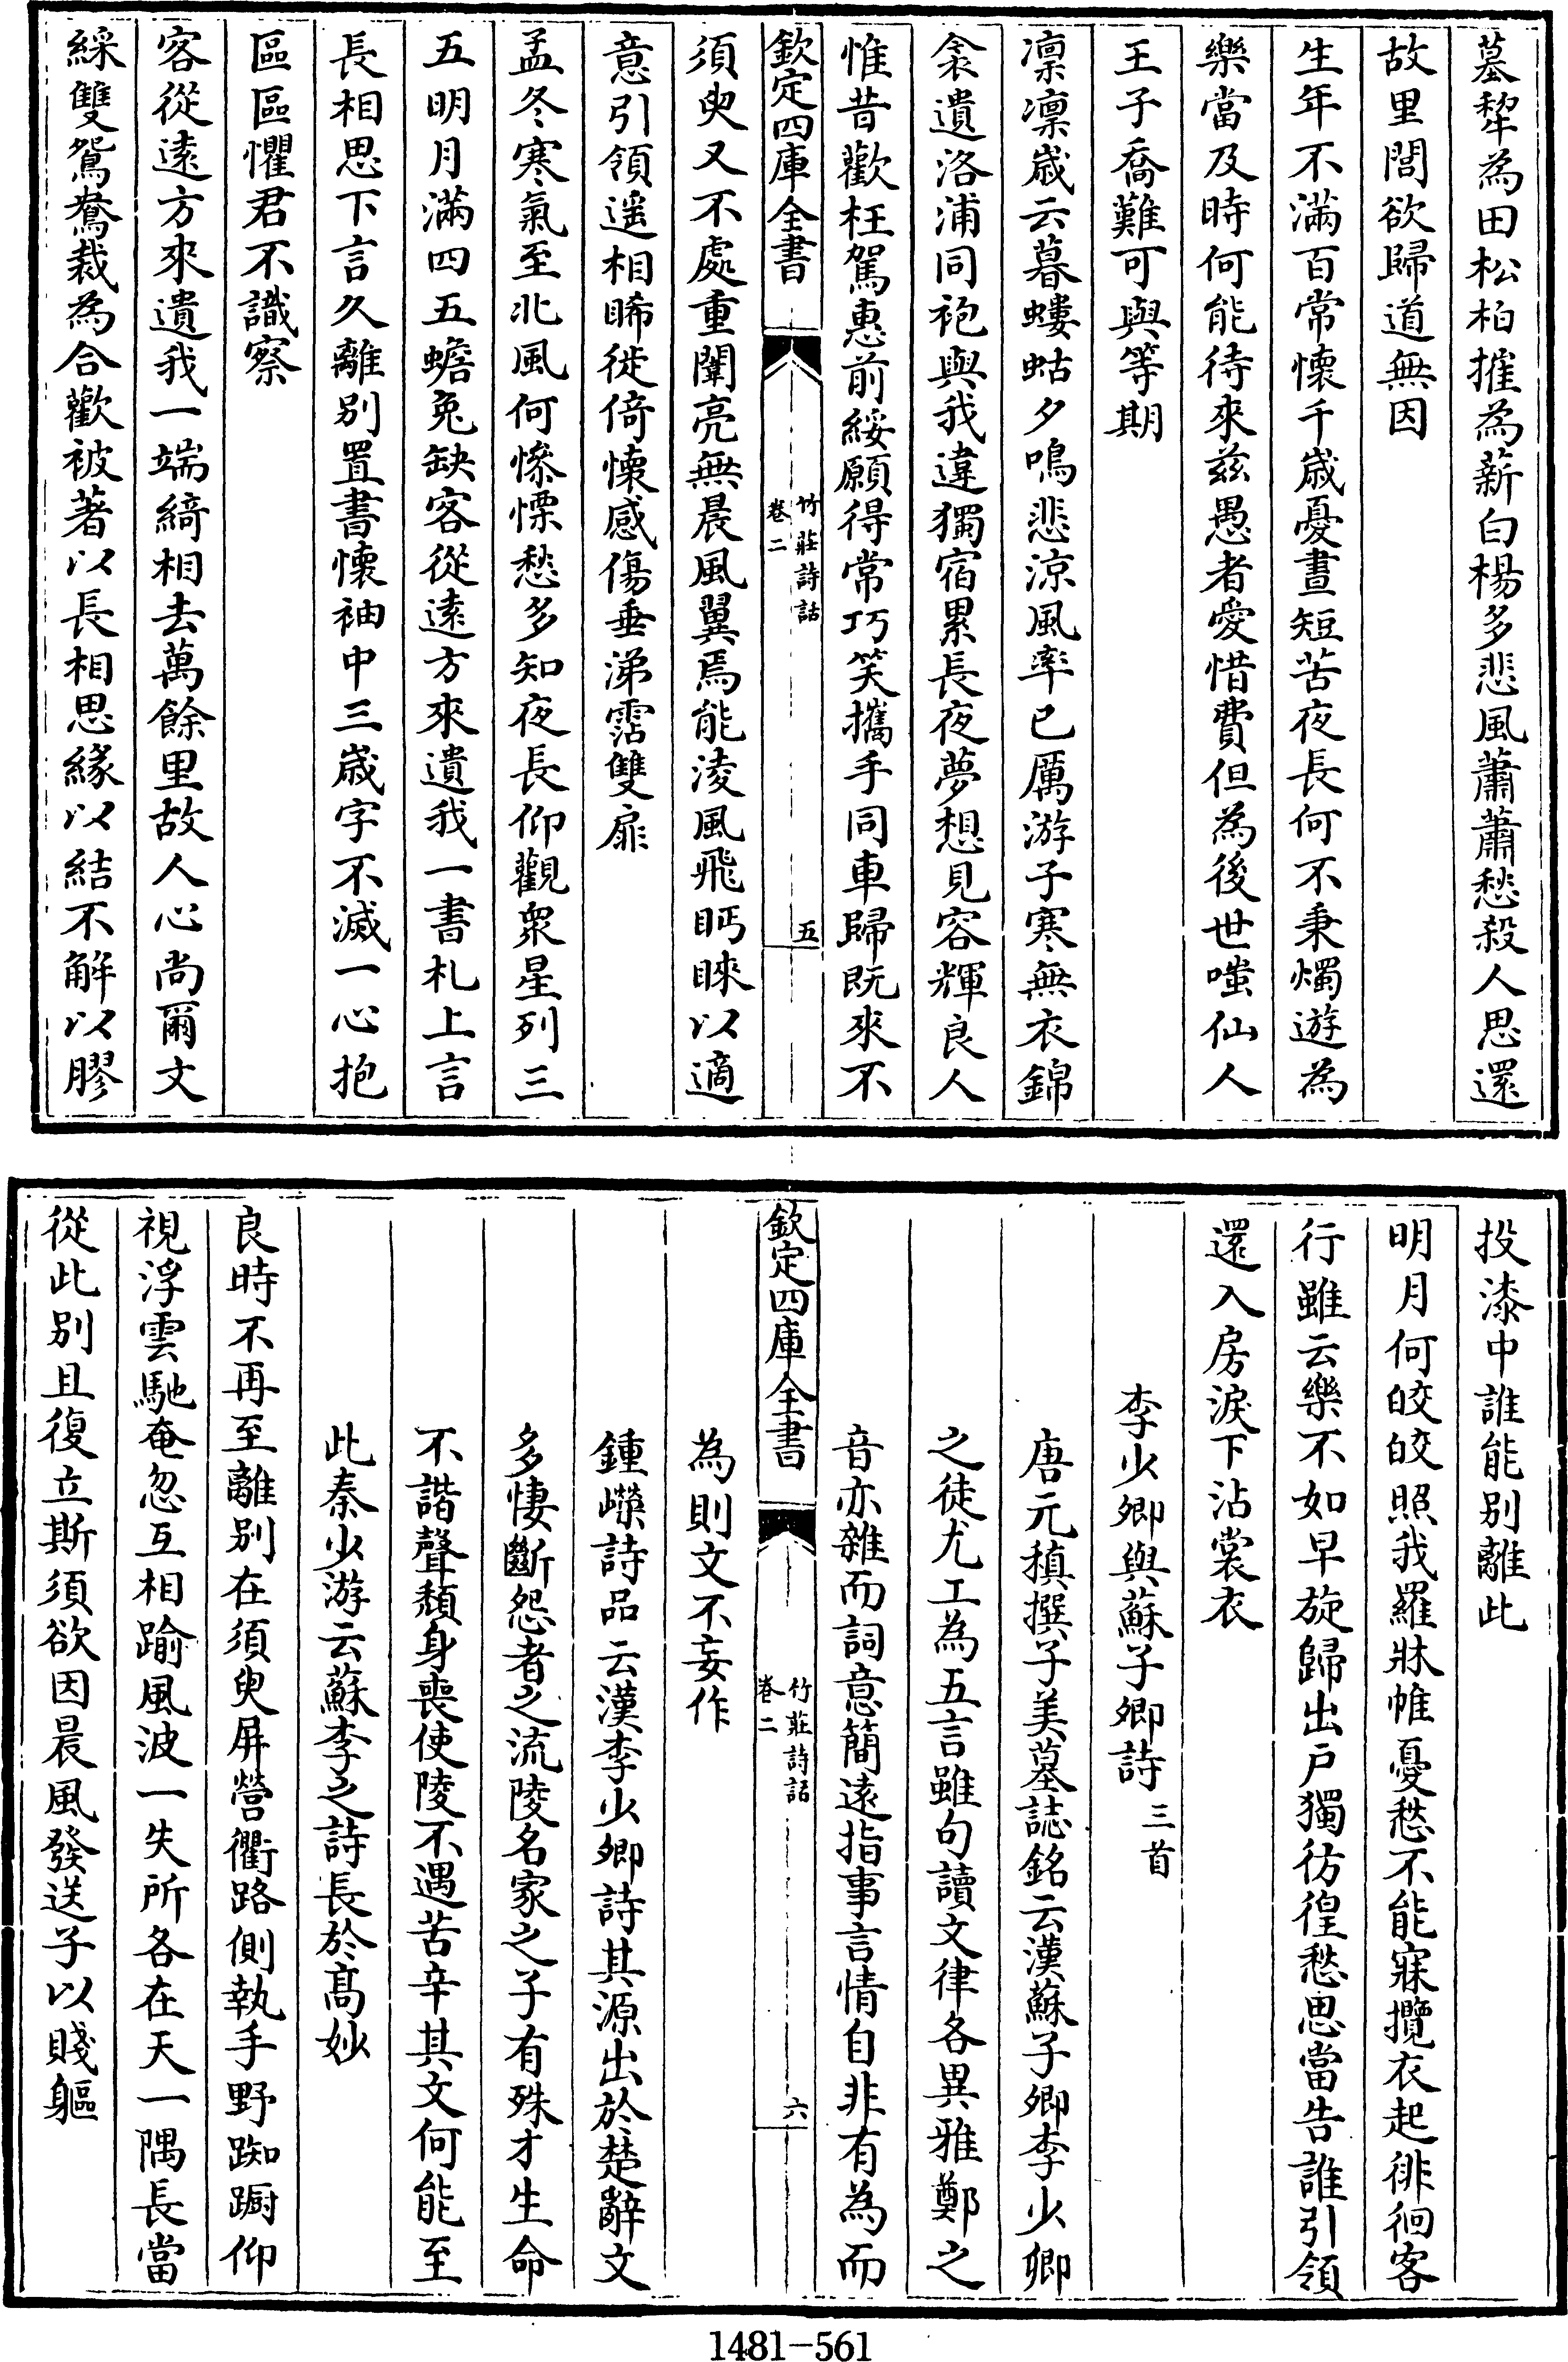 墓犂為田松柏摧為薪白楊多悲風蕭蕭愁殺人思還
故里閭欲歸道無因
生年不滿百常懷千歲憂晝短苦夜長何不秉燭遊為
樂當及時何能待來兹愚者愛惜費但為後世嗤仙人
王子喬難可與等期
凛凛歲云暮螻蛄夕鳴悲涼風率已厲游子寒無衣錦
衾遺洛浦同袍與我違獨宿累長夜夢想見容輝良人
惟昔歡枉駕惠前綏願得常巧笑攜手同車歸既來不
欽定四庫全書
竹莊詩話
卷二
五
須臾又不處重闈亮無晨風翼焉能淩風飛眄睞以適
意引領遥相睎徙倚懷感傷垂涕霑雙扉
孟冬寒氣至北風何慘慄愁多知夜長仰觀衆星列三
五明月滿四五蟾兔缺客從逺方來遺我一書札上言
長相思下言久離别置書懷袖中三歲字不滅一心抱
區區懼君不識察
客從逺方來遺我一端綺相去萬餘里故人心尚爾文
綵雙鴛鴦裁為合歡被著以長相思緣以結不解以膠
投漆中誰能别離此
明月何皎皎照我羅牀帷憂愁不能寐攬衣起徘徊客
行雖云樂不如早旋歸出户獨彷徨愁思當告誰引領
還入房淚下沾裳衣
李少卿與蘇子卿詩三首
唐元稹撰子美墓誌銘云漢蘇子卿李少卿
之徒尤工為五言雖句讀文律各異雅鄭之
音亦雜而詞意簡逺指事言情自非有為而
欽定四庫全書
竹莊詩話
卷二
六
為則文不妄作
鍾嶸詩品云漢李少卿詩其源出於楚辭文
多悽斷怨者之流陵名家之子有殊才生命
不諧聲頽身喪使陵不遇苦辛其文何能至
此秦少游云蘇李之詩長於髙妙
良時不再至離别在須臾屏營衢路側執手野踟蹰仰
視浮雲馳奄忽互相踰風波一失所各在天一隅長當
從此别且復立斯須欲因晨風發送子以賤軀
1481-561